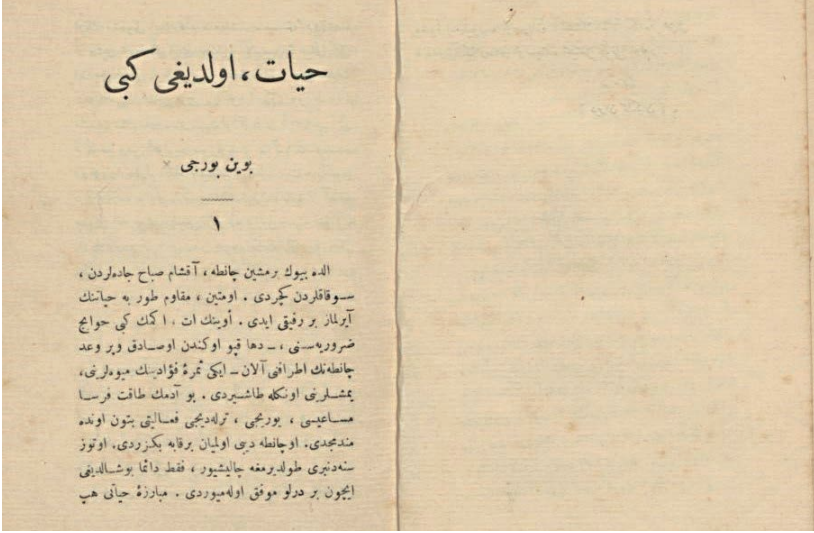 حيات، اولديغى كبى
بوين بورجى
١
الده بيوك برمشين چانطه ، آقشام صباح جاده‌لردن ،
سوقاقلردن كچردى . اومتين ، مقاوم طور به حياتنك
آيرلماز بر رفيقى ايدى . أوينك ات ، اكمك كبى حوايج
ضروريه‌سنى ، ــ دها قپو اوكندن اوصادق وير وعد
چانطه‌نك اطرافنى آلان ــ ايكى ثمرۀ فؤادينك ميوه‌لرينى،
يمشلرينى اونكله طاشيردى . بو آدمك طاقت فرسا
مساعيسى ، يورنجى ، ترله‌ديجى فعاليتى بتون اونده
مندمجدى. اوچانطه ديبى اولميان برقابه بكزردى. اوتوز
سنه‌دنبرى طولديرمغه چاليشيور ، فقط دائما بوشالديغى
ايچون بر درلو موفق اوله‌ميوردى . مبارزۀ حياتى هپ